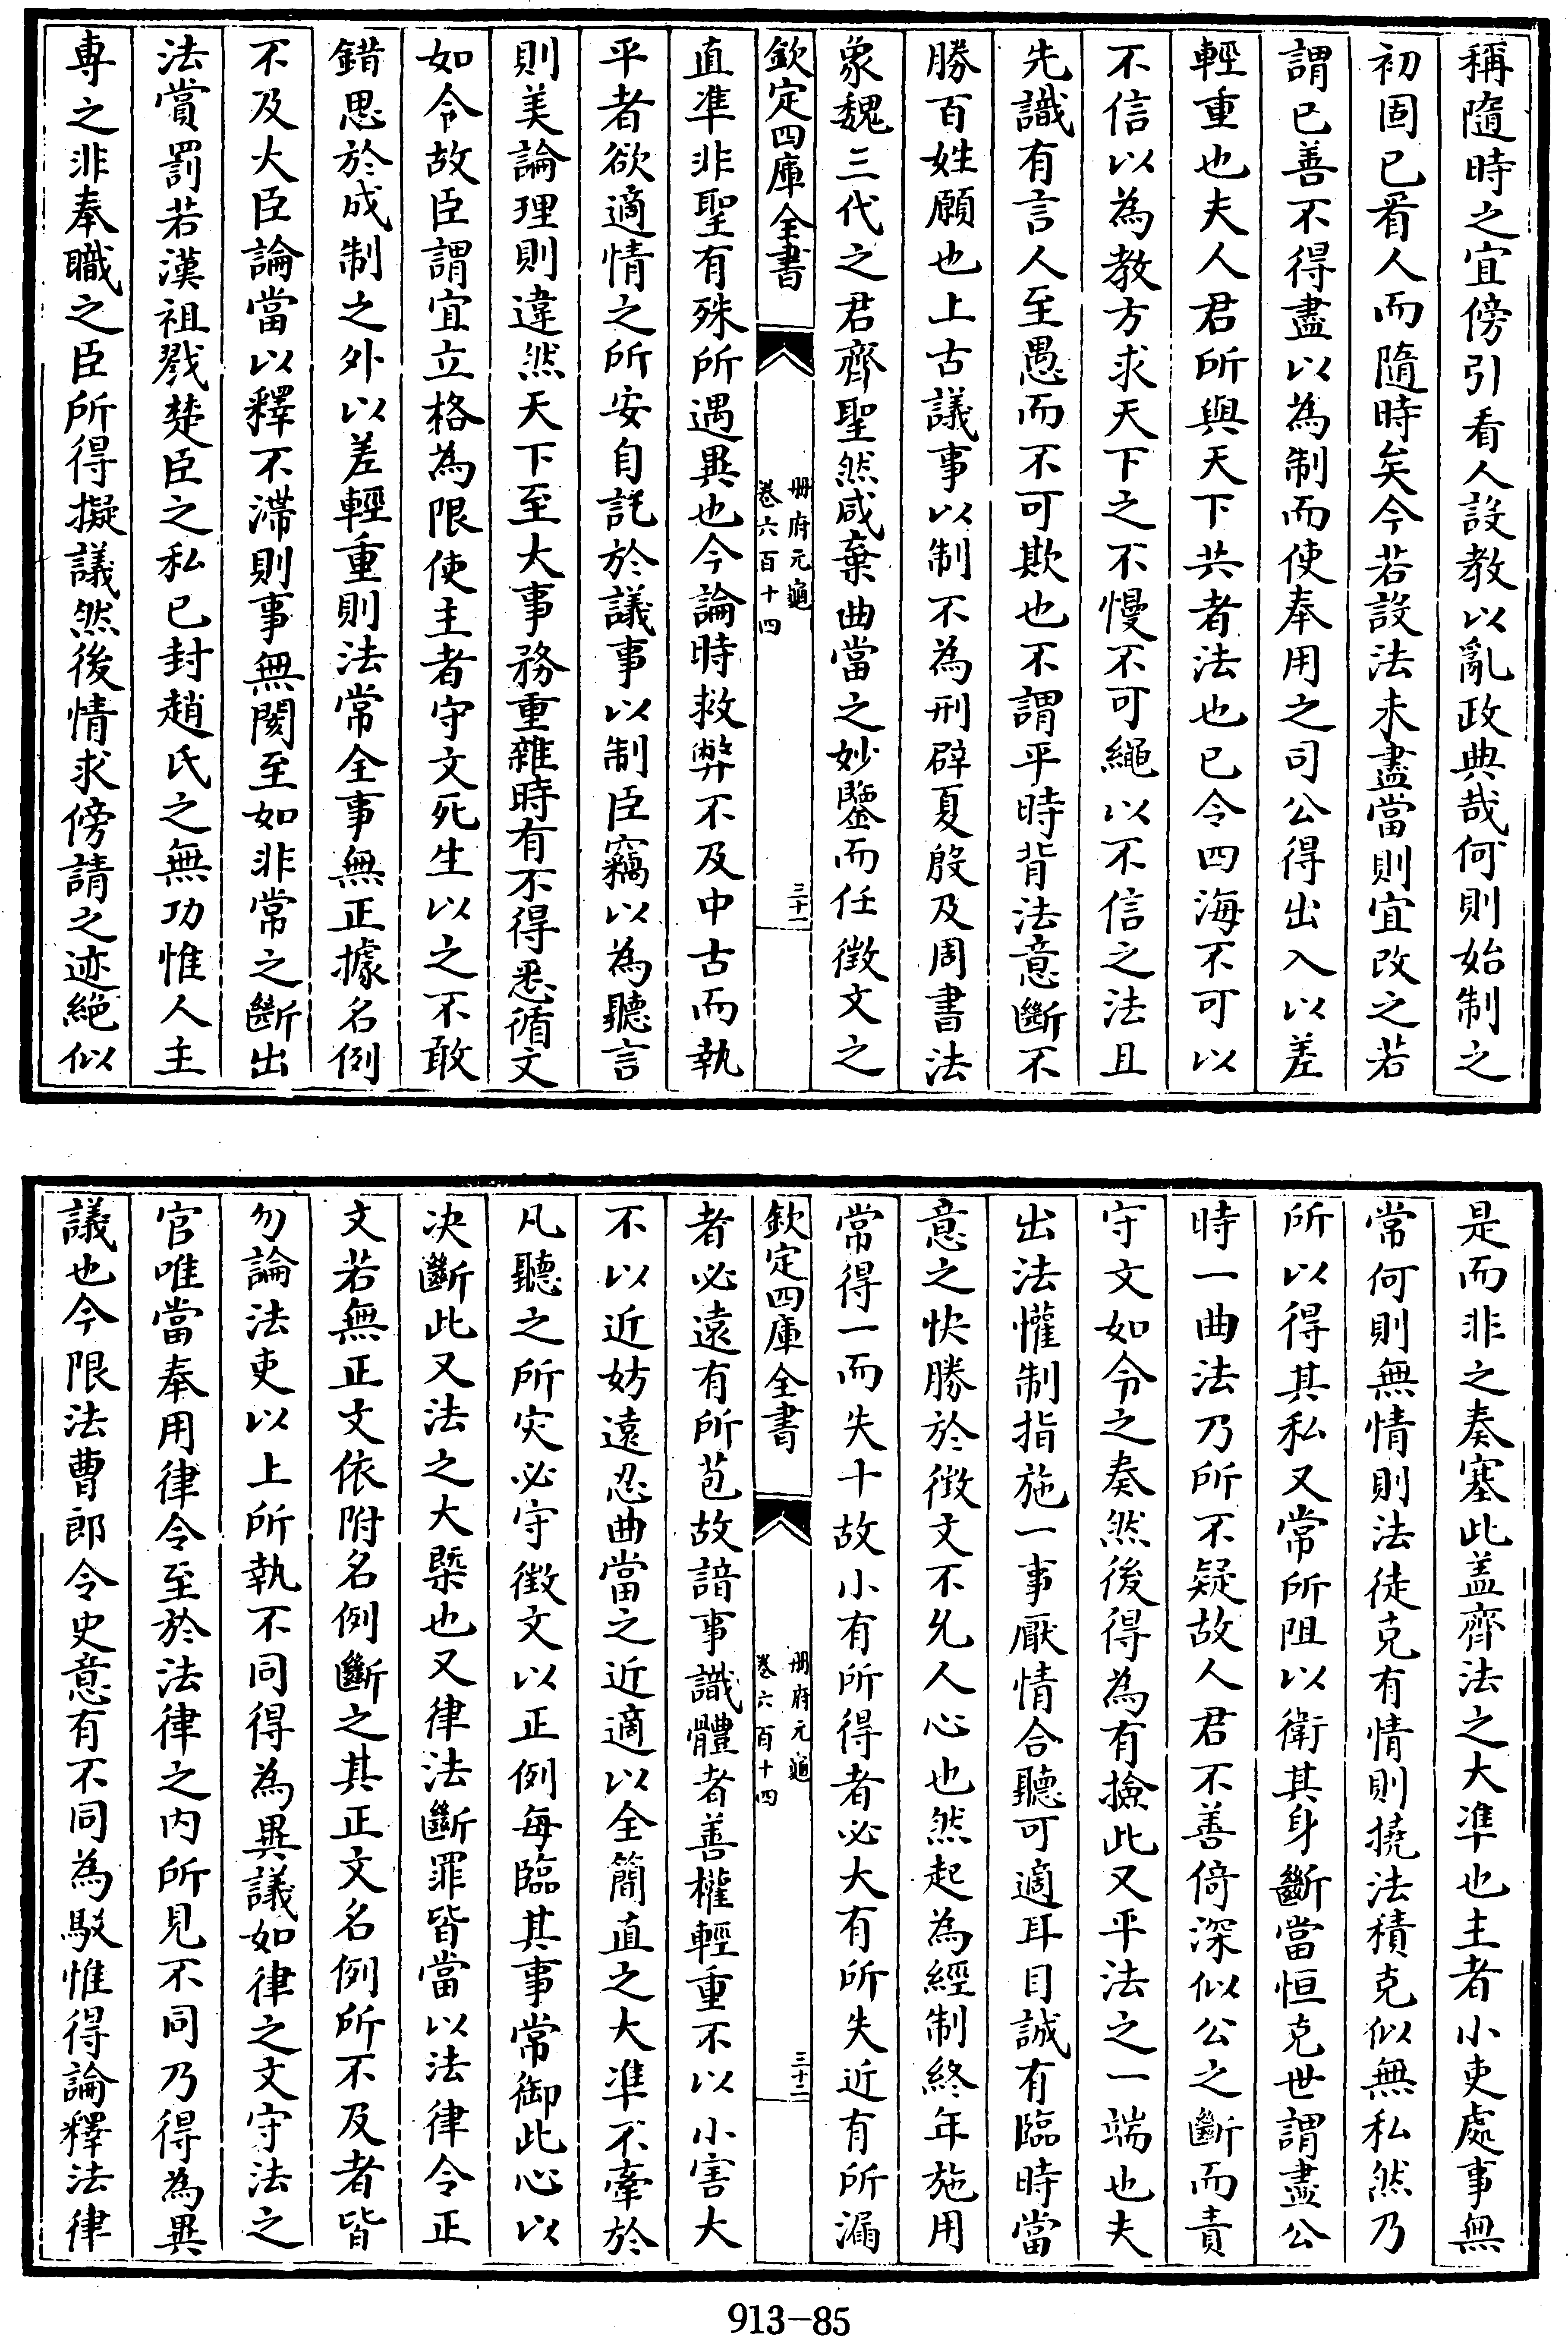 稱隨時之宜傍引看人設教以亂政典哉何則始制之
初固已看人而隨時矣今若設法未盡當則宜改之若
謂已善不得盡以為制而使奉用之司公得出入以差
輕重也夫人君所與天下共者法也已令四海不可以
不信以為教方求天下之不慢不可繩以不信之法且
先識有言人至愚而不可欺也不謂平時背法意斷不
勝百姓願也上古議事以制不為刑辟夏殷及周書法
象魏三代之君齊聖然咸棄曲當之妙鑒而任徴文之
欽定四庫全書
冊府元龜
卷六百十四
三十一
直準非聖有殊所遇異也今論時救弊不及中古而執
平者欲適情之所安自託於議事以制臣竊以為聽言
則美論理則違然天下至大事務重雜時有不得悉循文
如令故臣謂宜立格為限使主者守文死生以之不敢
錯思於成制之外以差輕重則法常全事無正據名例
不及大臣論當以釋不滯則事無閡至如非常之斷出
法賞罰若漢祖戮楚臣之私已封趙氏之無功惟人主
專之非奉職之臣所得擬議然後情求傍請之迹絕似
是而非之奏塞此盖齊法之大準也主者小吏處事無
常何則無情則法徒克有情則撓法積克似無私然乃
所以得其私又常所阻以衛其身斷當恒克世謂盡公
時一曲法乃所不疑故人君不善倚深似公之斷而責
守文如令之奏然後得為有撿此又平法之一端也夫
出法懽制指施一事厭情合聽可適耳目誠有臨時當
意之快勝於徴文不允人心也然起為經制終年施用
常得一而失十故小有所得者必大有所失近有所漏
欽定四庫全書
冊府元龜
卷六百十四
三十二
者必遠有所苞故諳事識體者善權輕重不以小害大
不以近妨遠忍曲當之近適以全簡直之大準不牽於
凡聽之所灾必守徴文以正例每臨其事常御此心以
决斷此又法之大槩也又律法斷罪皆當以法律令正
文若無正文依附名例斷之其正文名例所不及者皆
勿論法吏以上所執不同得為異議如律之文守法之
官唯當奉用律令至於法律之内所見不同乃得為異
議也今限法曹郎令史意有不同為駁惟得論釋法律
913-85